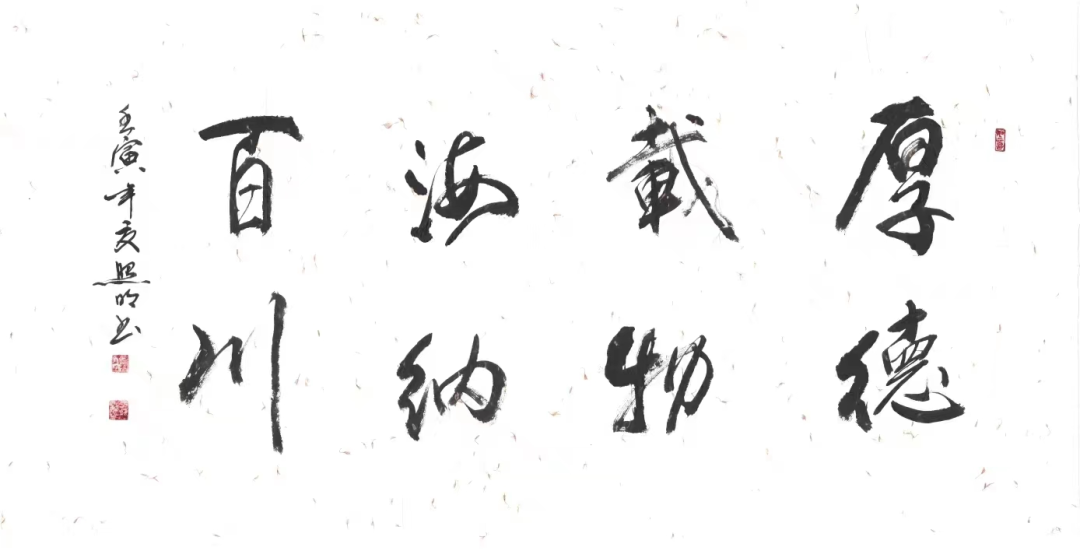 厚德
載物
海纳
百川
壬寅年夏照明书